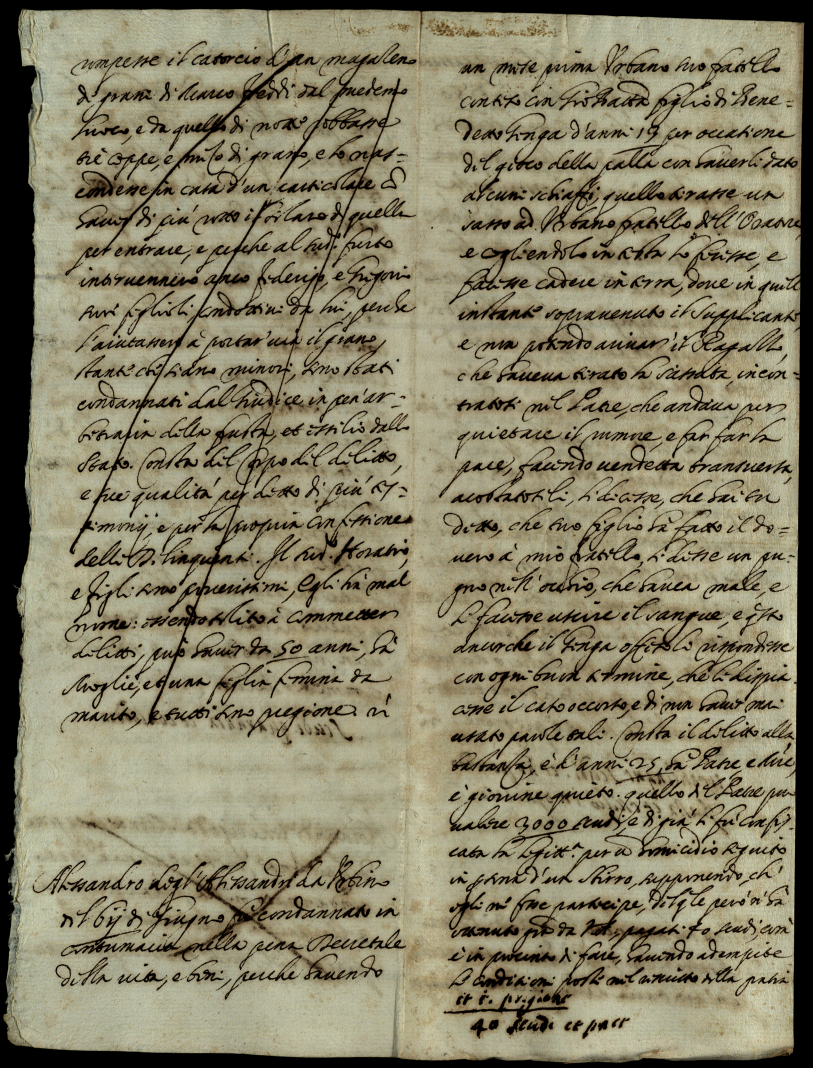 rompesse il catorcio d'un magaleno
di grani di Marco freddi dal medemo
luoco, e da quello di notte robbasse
trè coppe, e mezo di grano, e lo nas-
condesse in casa d'un particolare cō
haver di più rotto il solaro di quella
per entrare, e perche al sud.º furto
intervennero anco federigo, e Gregorio
suoi figlioli condottivi da lui, perche
l'aiutassero à portar via il grano,
stante che siano minori, sono stati
condannati dal Giudice in pen'ar-
bitraria della frusta, et essilio dallo
stato. Consta del corpo del delitto,
e sue qualità per detto di più tes-
timonij, e per la propria confessione
delli Delinquenti. Il sud.º Horatio,
e figli sono poverissimi, egli hà mal
nome: essendo solito à commetter
delitti, può haver da 50 anni, hà
Moglie, et una figlia femina da
marito, e tutti sono pregione.
Alessandro degl'Alessandri da Urbino
del 6ij di Giugno fù condannato in
contumacia nella pena Decretale
della vita, e beni, perche havendo
un mese prima Urbano suo fratello
conteso con Gio Batta figlio di Bene-
detto Genga d'anni 17 per occasione
del gioco della palla con haverli dato
alcuni schiaffi, quello tirasse un
sasso ad Urbano fratello dell'Oratore,
e cogliendolo in testa lo ferisse, e
facesse cadere in terra, dove in quell'
instante sopravenuto il supplicante,
e non potendo arrivar' il Ragazzo,
che haveva tirato la sassata, incon-
tratosi nel Patre, che andava per
quietare il rumore, e far far la
pace, facendo vendetta transversa,
accostatoseli, li dicesse, che hai tu
detto, che tuo figlio hà fatto il do-
vero à mio fratello, li desse un pu-
gno nell'occhio, che havea male, e
li facesse uscire il sangue, e q̃sto
ancorche il Genga offeso li rispondesse
con ogni buon termine, che li dispia-
cesse il caso occorso, e di non haver mai
usato parole tali. Consta il delitto alla
bastanza, è d'anni 25, hà Patre e Madre,
è giovine quieto. quello del Patre può
valere 3000 scudi, e di più li fù confis-
cata la legitt.ª per un homicidio seguito
in persona d'un sbirro, supponendo, ch'
egli ne fosse partecipe, del q̃le però n'hà
ottenuto gr̃a da
è in procinto di fare, havendo adempite
le conditioni poste nel rescritto della gratia
40 scudi et pace